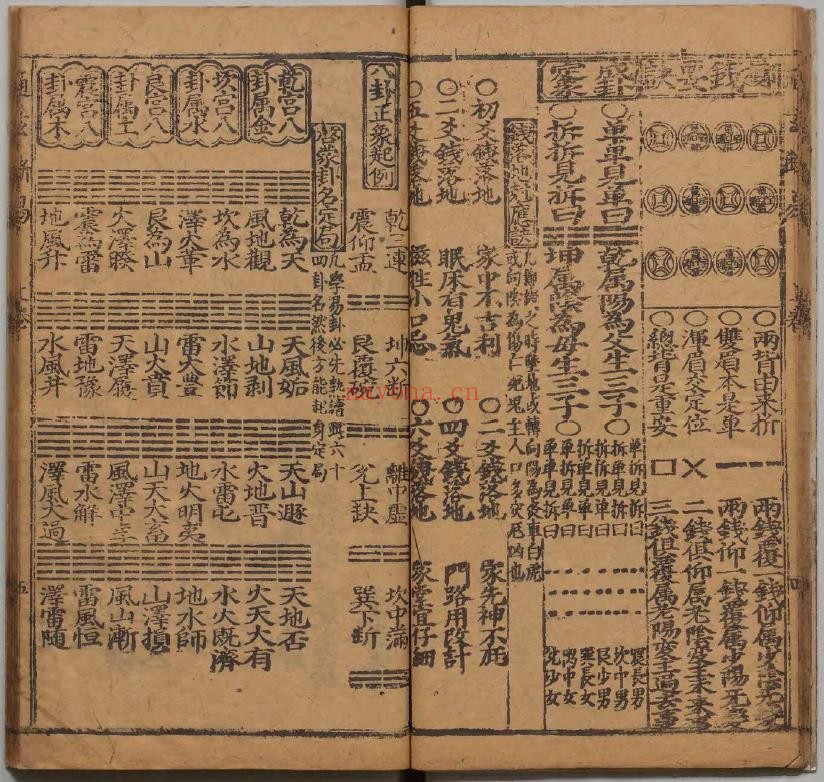 擲錢要訣
○兩背由來拆 兩錢覆一錢仰屬少陰无變
○雙眉本是單 兩錢仰一錢覆屬少陽无變
○渾眉交定位 二錢俱仰屬老陰變主未來事
○總背是重安 三錢俱覆屬老陽變主過去事
成卦定象
○單單見單曰 乾屬陽為父生三子○
單拆見拆曰 震長男
拆單見拆曰 坎中男
拆拆見單曰 艮少男
○拆拆見拆曰 坤屬陰為母生三子○
拆單見單曰 巽長女
單拆見單曰 离中女
單單見拆曰 兌少女
錢落地剋應訣
凡擲錢之時墜地上或轉向陽為喪車白虎
或向陰為傷亡死鬼主人口多災厄凶也
○初爻錢落地 家中不吉利 ○二爻錢落地 家先神不旺
○三爻錢落地 眠床有鬼氣 ○四爻錢落地 門路用改計
○五爻錢落地 小口忌 ○六爻錢落地 家堂宜仔細
八卦正象起例
乾三連 坤六斷 離中虛 坎中滿
震仰盂 艮覆碗 兌上缺 巽下斷
卦名定局
凡學易卦必先熟讀六十
四卦名然後方能起身定局
乾宮八卦屬金
乾為天 天風姤 天山遯 天地否
風地觀 山地剥 火地晋 火天大有
坎宮八卦屬水
坎為水 水澤節 水雷屯 水火既濟
澤火革 雷火豊 地火明夷 地水師
艮宮八卦屬土
艮為山 山火賁 山天大畜 山澤損
火澤睽 天澤履 風澤中孚 風山漸
震宮八卦屬木
震為雷 雷地豫 雷水解 雷風恒
地風升 水風井 澤風大過 澤雷隨
五
nayona.cn